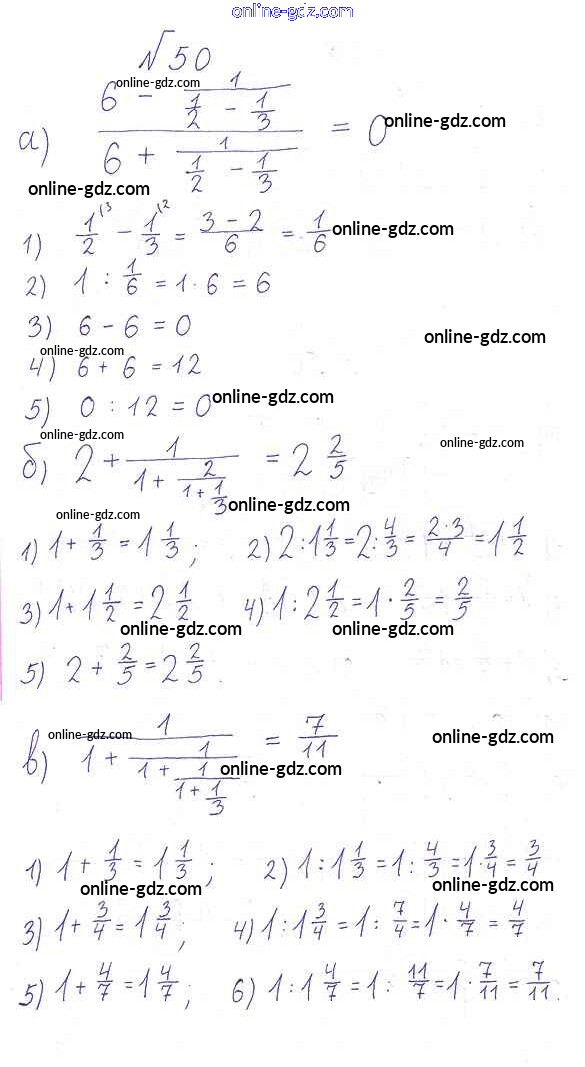 online-gdz.com
№50
online-gdz.com
а) (6 - 1/(1/2 - 1/3))/(6 + 1/(1/2 - 1/3)) = 0 online-gdz.com
online-gdz.com
1) 1/2^(3 - 1/3^(2 = (3 - 2)/6 = 1/6 online-gdz.com
2) 1 : 1/6 = 1 · 6 = 6
3) 6 - 6 = 0
online-gdz.com
online-gdz.com
4) 6 + 6 = 12
5) 0 : 12 = 0 online-gdz.com
б) 2 + 1/(1 + 2/(1 + 1/3)) = 2 2/5 online-gdz.com
online-gdz.com
online-gdz.com
1) 1 + 1/3 = 1 1/3 ; 2) 2 : 1 1/3 = 2 : 4/3 = (2·3)/4 = 1 1/2
3) 1 + 1 1/2 = 2 1/2 4) 1 : 2 1/2 = 1 · 2/5 = 2/5
online-gdz.com online-gdz.com
5) 2 + 2/5 = 2 2/5.
online-gdz.com online-gdz.com
в) 1 + 1/(1 + 1/(1 + 1/(1 + 1/3))) = 7/11
online-gdz.com
1) 1 + 1/3 = 1 1/3 ; 2) 1 : 1 1/3 = 1 : 4/3 = 1 · 3/4 = 3/4
online-gdz.com online-gdz.com
3) 1 + 3/4 = 1 3/4 ; 4) 1 : 1 3/4 = 1 : 7/4 = 1 · 4/7 = 4/7
5) 1 + 4/7 = 1 4/7 ; 6) 1 : 1 4/7 = 1 : 11/7 = 1 · 7/11 = 7/11.